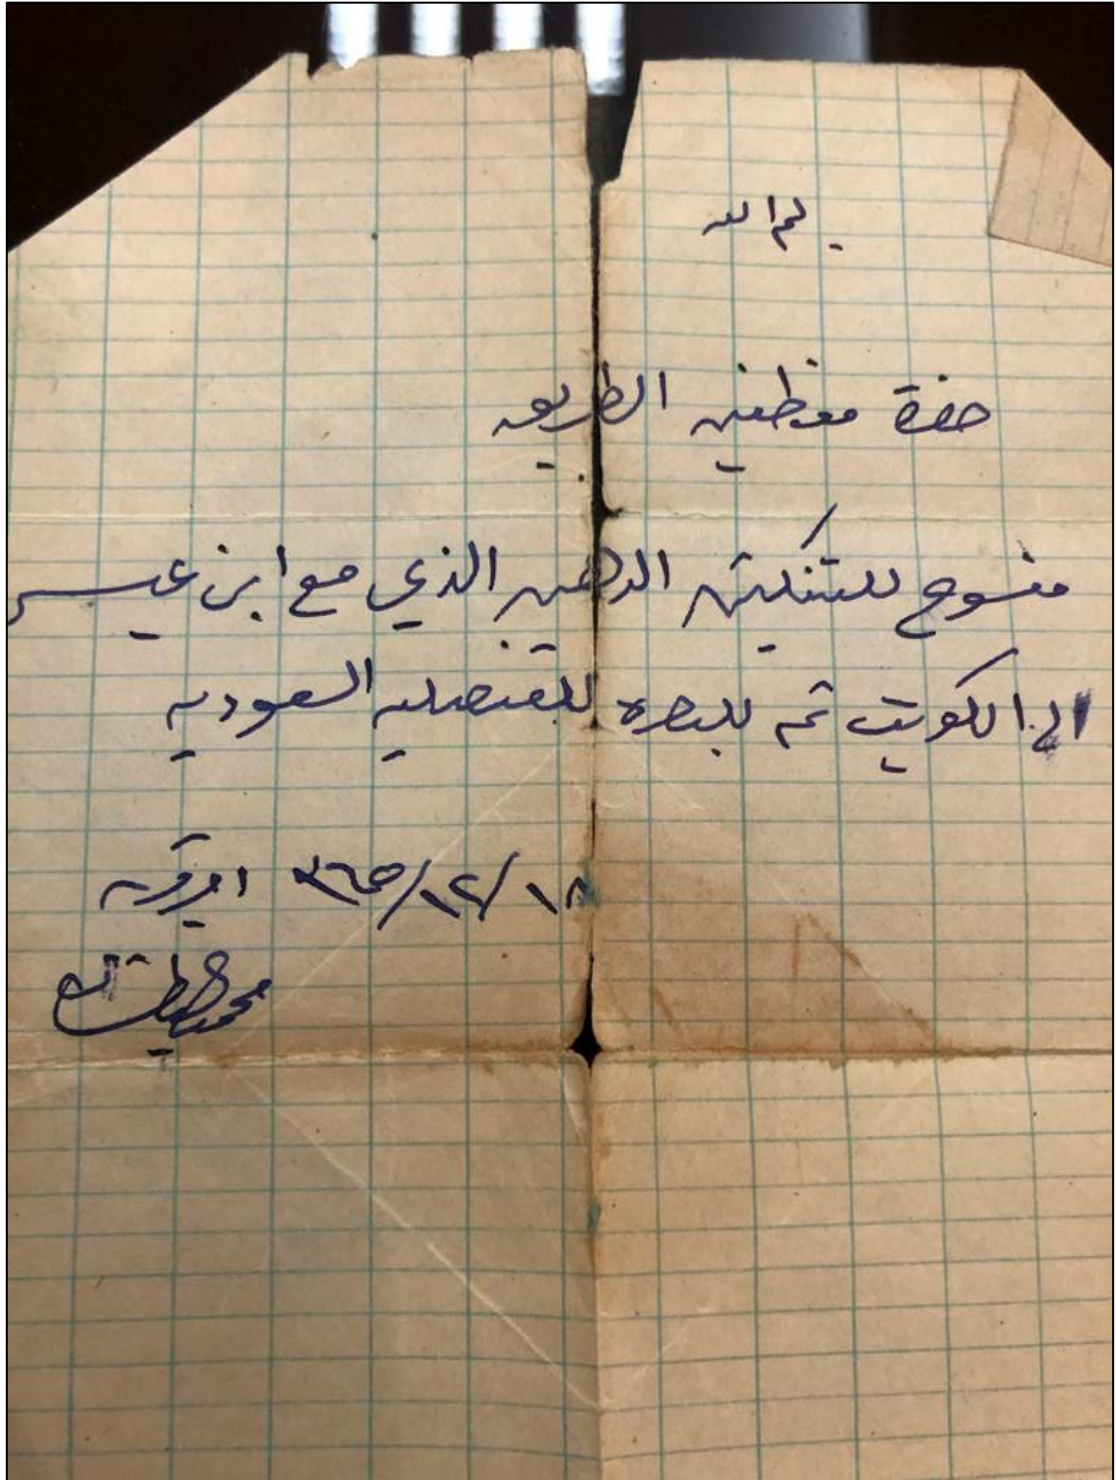 بسم الله
حضرة موظفين الطريق
مفسوح للتنكتين الدهن الذي مع ابن عيسى
الى الكويت ثم للبصره للقنصليه السعوديه
١٨/١٢/٣٦٥
محمد